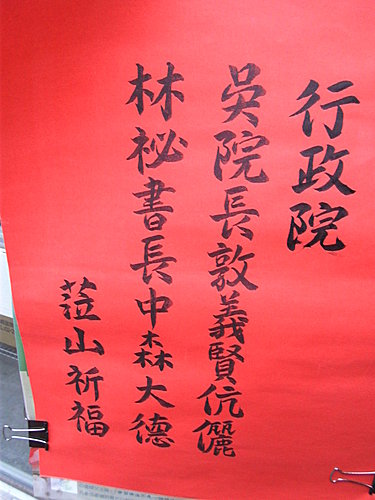 行政院
吳院長敦義賢伉儷
林祕書長中森大德
蒞山祈福